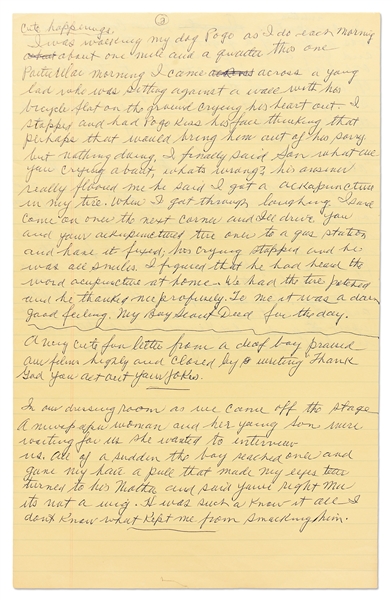 ②
cute happenings.
I was walking my dog Pogo as I do each morning
about about one mile and a quarter this one
Particular morning I came across across a young
lad who was sitting against a wall with his
bicycle flat on the ground crying his heart out. I
stopped and had Pogo kiss his face thinking that
perhaps that would bring him out of his sorry
but nothing doing, I finally said Son what are
you crying about, whats wrong? his answer
really floored me he said I got a acupuncture
in my tire. When I got through laughing I said
come on over the next corner and I'll drive you
and your acupunctured tire over to a gas station
and have it fixed, his crying stopped and he
was all smiles. I figured that he had heard the
word acupuncture at home. We had the tire patched
and he thanked me profusely. To me it was a darn
good feeling. My Boy Scout Deed for the day.
A very cute fan letter from a deaf boy praised
our films highly and closed by writing Thank
God you act out your jokes.
In our dressing room as we came off the stage
A newspaper woman and her young son were
waiting for us she wanted to interview
us. All of a sudden the boy reached over and
gave my hair a pull that made my eyes tear
turned to his Mother and said your right Ma
its not a wig. It was such a know it all I
dont know what kept me from smacking him.